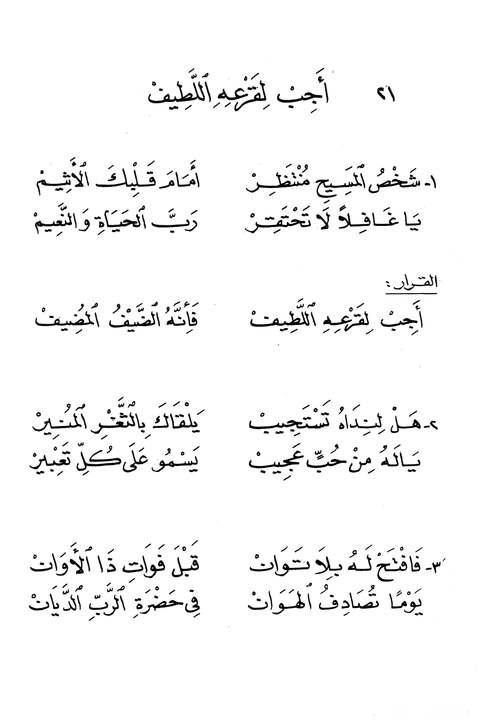 ٢١ أَجِبْ لِقَرْعِهِ اللَّطِيفْ
١- شَخْصُ المَسِيحِ مُنْتَظِرْ أَمَامَ قَلْبِكَ الأَثِيمْ
يَا غَافِلاً لَا تَحْتَقِرْ رَبَّ الحَيَاةِ وَالنَّعِيمْ
القرار:
أَجِبْ لِقَرْعِهِ اللَّطِيفْ فَإِنَّهُ الضَّيْفُ المُضِيفْ
٢- هَلْ لِنِدَاهُ تَسْتَجِيبْ يَلْقَاكَ بِالثَّغْرِ المُنِيرْ
يَالَهُ مِنْ حُبٍّ عَجِيبْ يَسْمُو عَلَى كُلِّ تَعْبِيرْ
٣- فَافْتَحْ لَهُ بِلَا تَوَانْ قَبْلَ فَوَاتِ ذَا الأَوَانْ
يَوْمًا تُصَادِفُ الهَوَانْ فِي حَضْرَةِ الرَّبِّ الدَّيَانْ